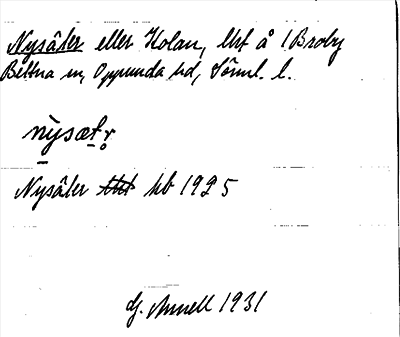 Nysäter eller Kolan, lht å 1 Broby
Bettna sn, Oppunda hd, Söml. l.
nysætr
Nysäter lht kb 1925
G. Annell 1931